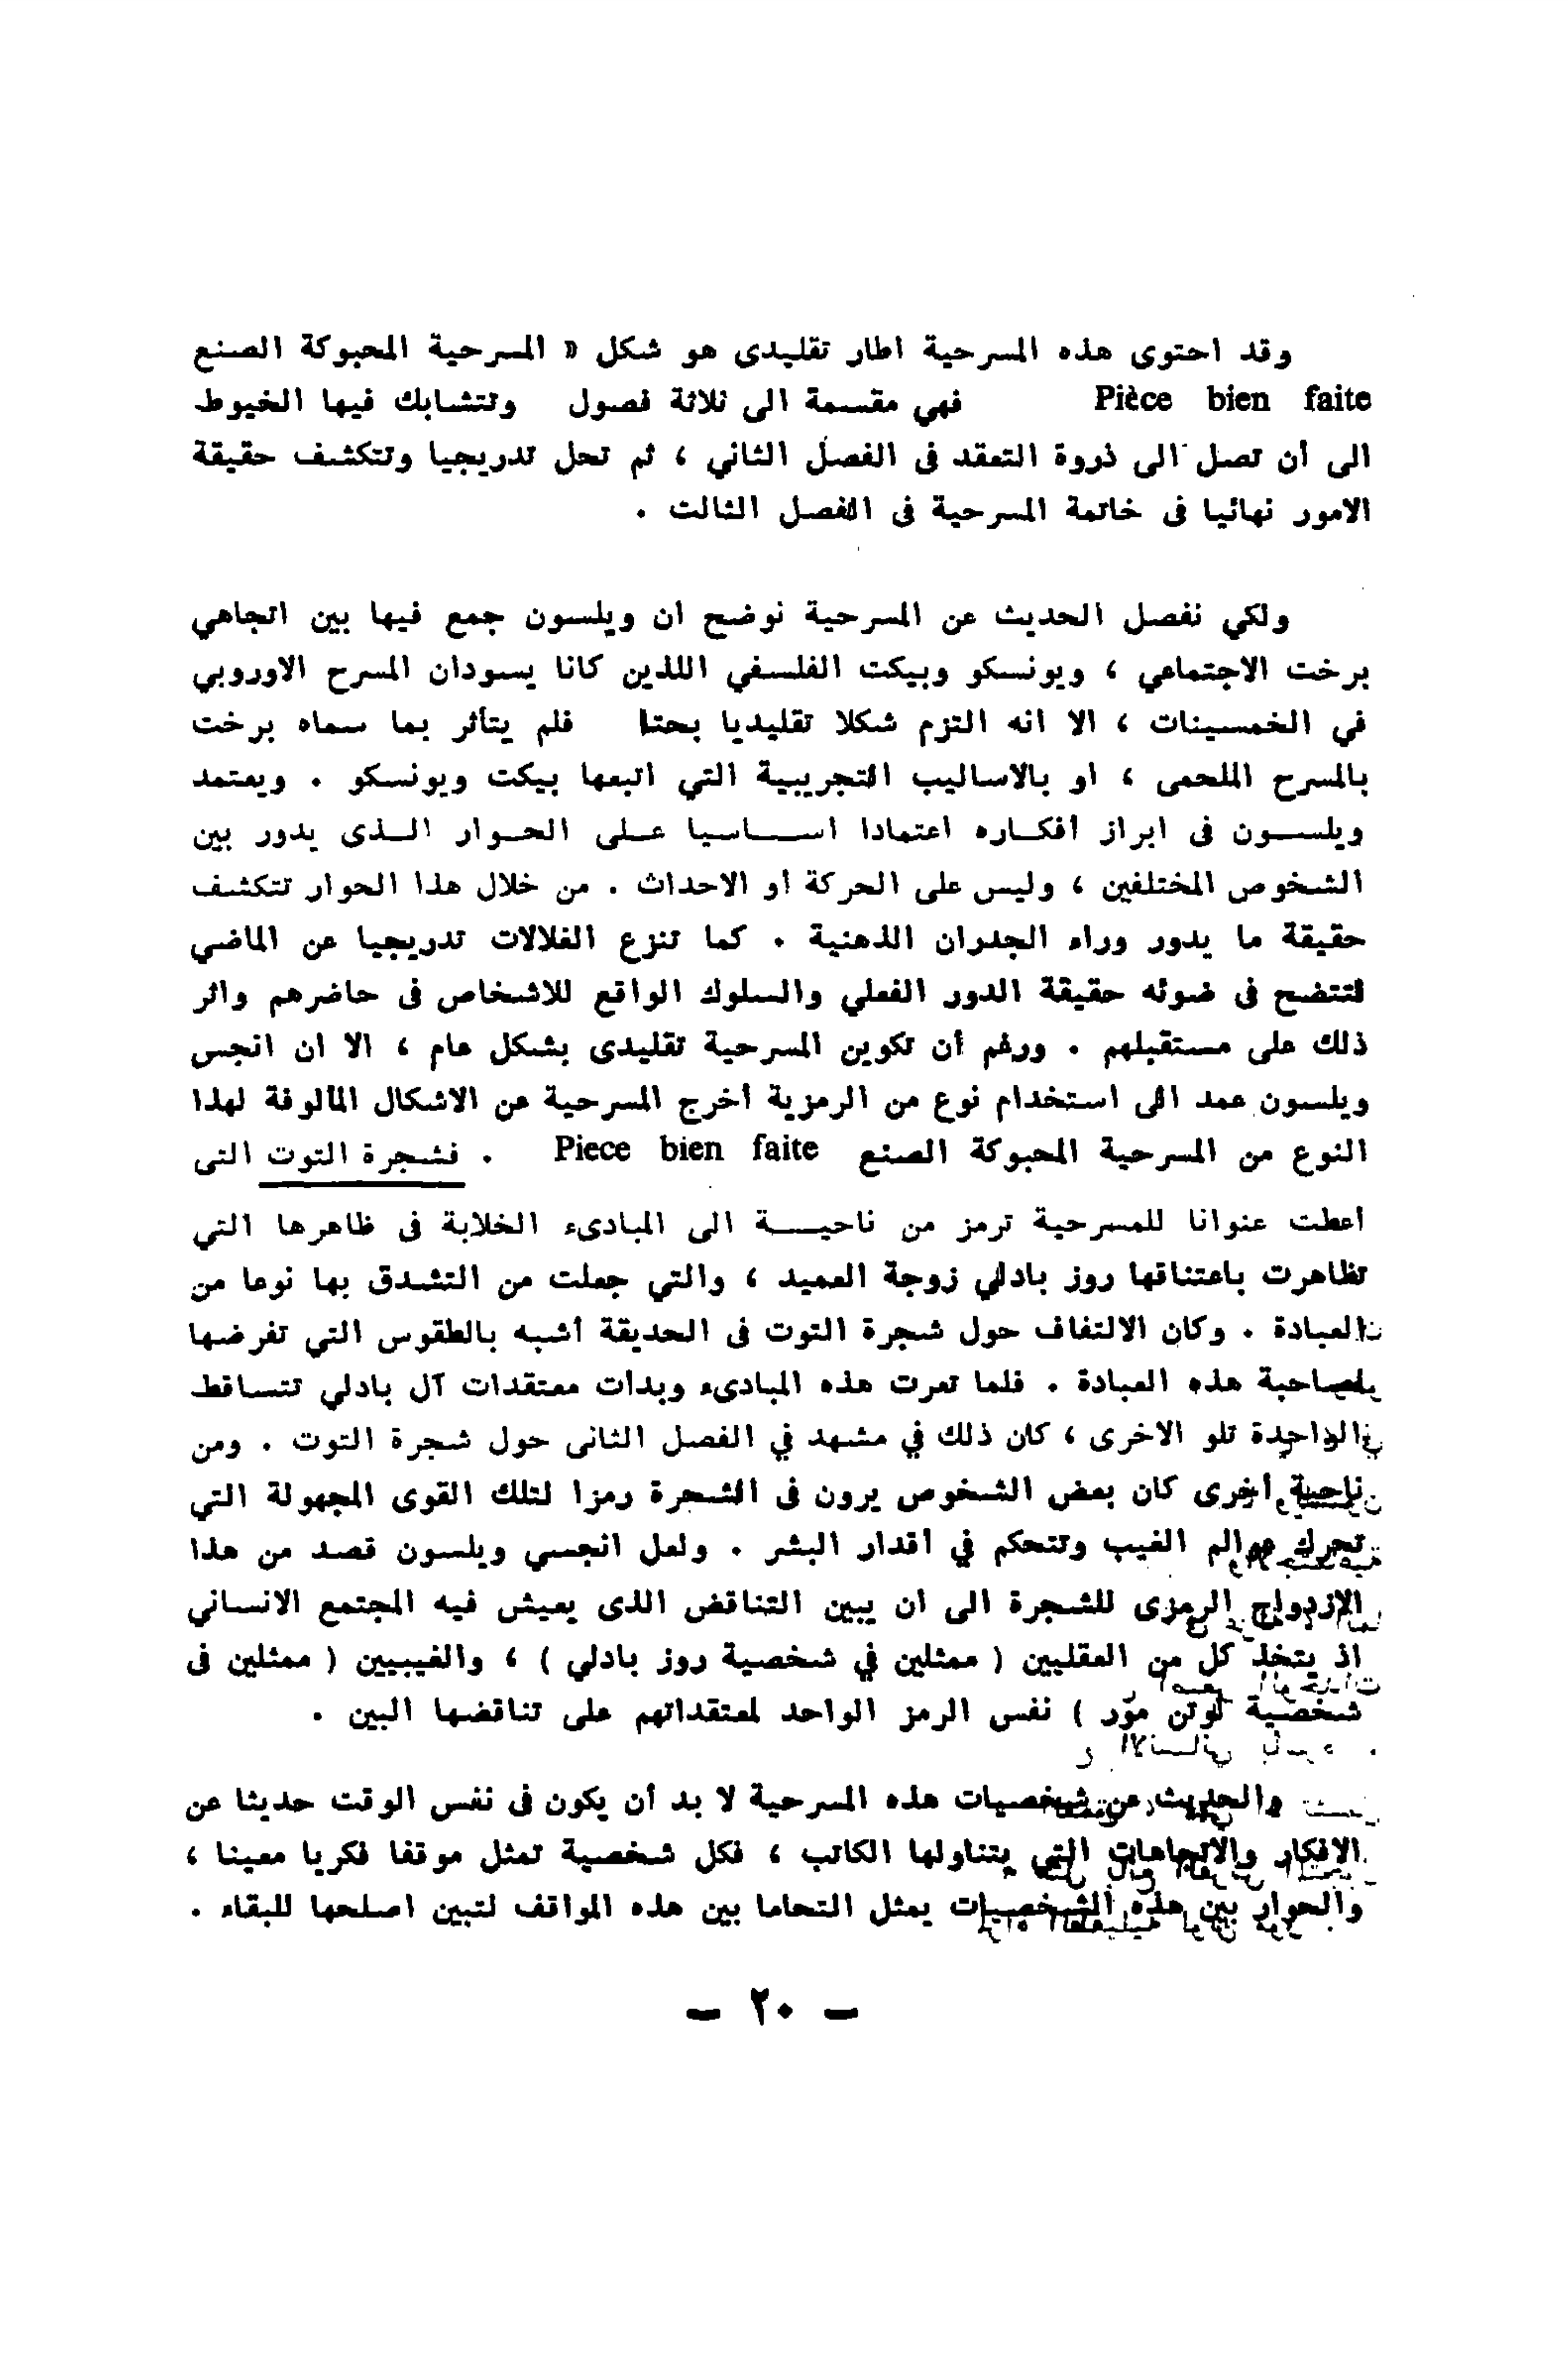 وقد احتوى هذه المسرحية اطار تقليدى هو شكل « المسرحية المحبوكة الصنع
Pièce bien faite فهي مقسمة الى ثلاثة فصول وتتشابك فيها الخيوط
الى أن تصل الى ذروة التعقد فى الفصل الثاني ، ثم تحل تدريجيا وتتكشف حقيقة
الامور نهائيا فى خاتمة المسرحية فى الفصل الثالث .
ولكي نفصل الحديث عن المسرحية نوضح ان ويلسون جمع فيها بين اتجاهي
برخت الاجتماعي ، ويونسكو وبيكت الفلسفي اللذين كانا يسودان المسرح الاوروبي
في الخمسينات ، الا انه التزم شكلا تقليديا بحتا فلم يتأثر بما سماه برخت
بالمسرح الملحمى ، او بالاساليب التجريبية التي اتبعها بيكت ويونسكو . ويعتمد
ويلســـون فى ابراز أفكـــاره اعتمادا اســـاسيا عـــلى الحـــوار الـــذى يدور بين
الشخوص المختلفين ، وليس على الحركة أو الاحداث . من خلال هذا الحوار تتكشف
حقيقة ما يدور وراء الجدران الذهنية . كما تنزع الغلالات تدريجيا عن الماضي
لتتضح فى ضوئه حقيقة الدور الفعلي والسلوك الواقع للاشخاص فى حاضرهم واثر
ذلك على مستقبلهم . ورغم أن تكوين المسرحية تقليدى بشكل عام ، الا ان انجس
ويلسون عمد الى استخدام نوع من الرمزية أخرج المسرحية عن الاشكال المألوفة لهذا
النوع من المسرحية المحبوكة الصنع Piece bien faite . فشجرة التوت التى
أعطت عنوانا للمسرحية ترمز من ناحيـــة الى المبادىء الخلابة فى ظاهرها التي
تظاهرت باعتناقها روز بادلي زوجة العميد ، والتي جعلت من التشدق بها نوعا من
العبادة . وكان الالتفاف حول شجرة التوت فى الحديقة أشبه بالطقوس التي تفرضها
صاحبة هذه العبادة . فلما تعرت هذه المبادىء وبدات معتقدات آل بادلي تتساقط
الواحدة تلو الاخرى ، كان ذلك في مشهد في الفصل الثانى حول شجرة التوت . ومن
ناحية أخرى كان بعض الشخوص يرون فى الشجرة رمزا لتلك القوى المجهولة التي
تحرك عوالم الغيب وتتحكم في أقدار البشر . ولعل انجسي ويلسون قصد من هذا
الازدواج الرمزى للشجرة الى ان يبين التناقض الذى يعيش فيه المجتمع الانساني
اذ يتخذ كل من العقليين ( ممثلين في شخصية روز بادلي ) ، والغيبيين ( ممثلين فى
شخصية لوتن مور ) نفس الرمز الواحد لمعتقداتهم على تناقضها البين .
والحديث عن شخصيات هذه المسرحية لا بد أن يكون فى نفس الوقت حديثا عن
الافكار والاتجاهات التي يتناولها الكاتب ، فكل شخصية تمثل موقفا فكريا معينا ،
والحوار بين هذه الشخصيات يمثل التحاما بين هذه المواقف لتبين اصلحها للبقاء .
— ٢٠ —